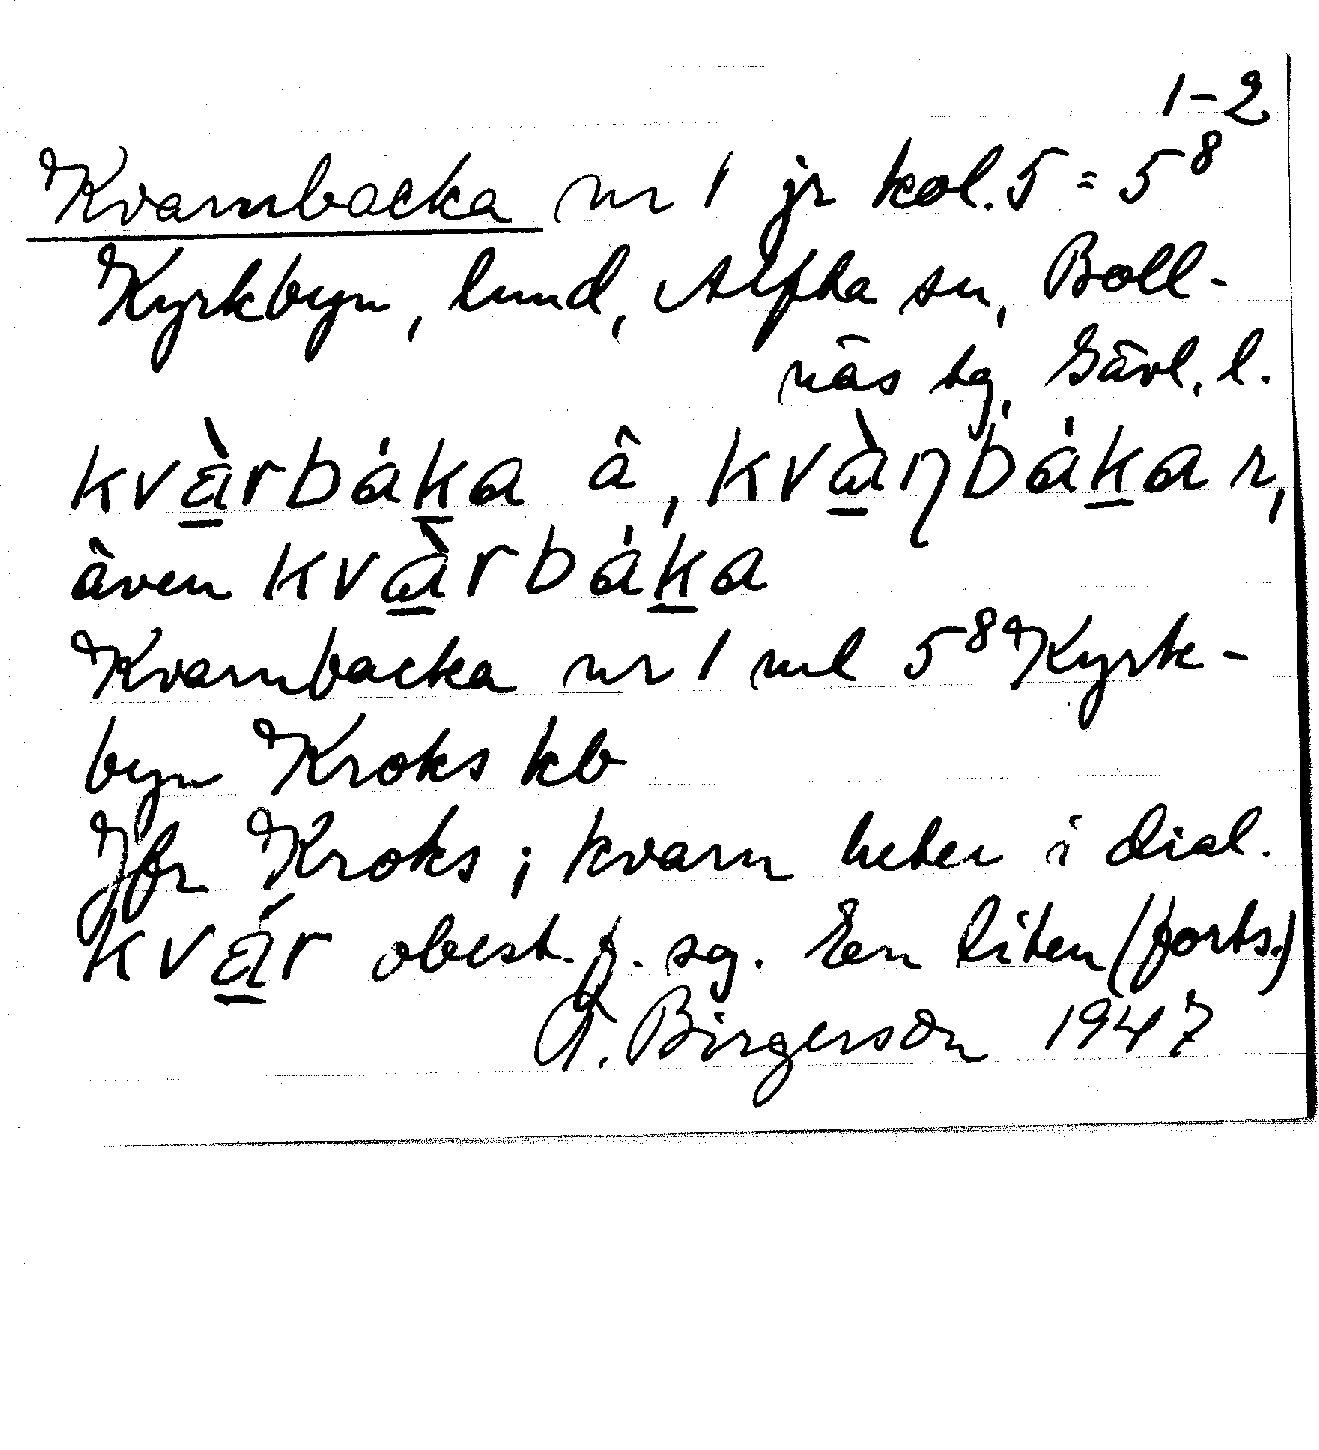 1-2
Kvarnbacka nr 1 jr kol. 5 = 5⁸
Kyrkbyn, lund, Alfta sn, Boll-
näs tg, Gävl. l.
kvàrbáka ä, kvàŋbáka r,
även kvàrbáka
Kvarnbacka nr 1 ml 5⁸ Kyrk-
byn Kroks kb
Jfr Kroks; kvarn heter i dial.
kvár obest. f. sg. En liten (forts.)
G. Birgerson 1947